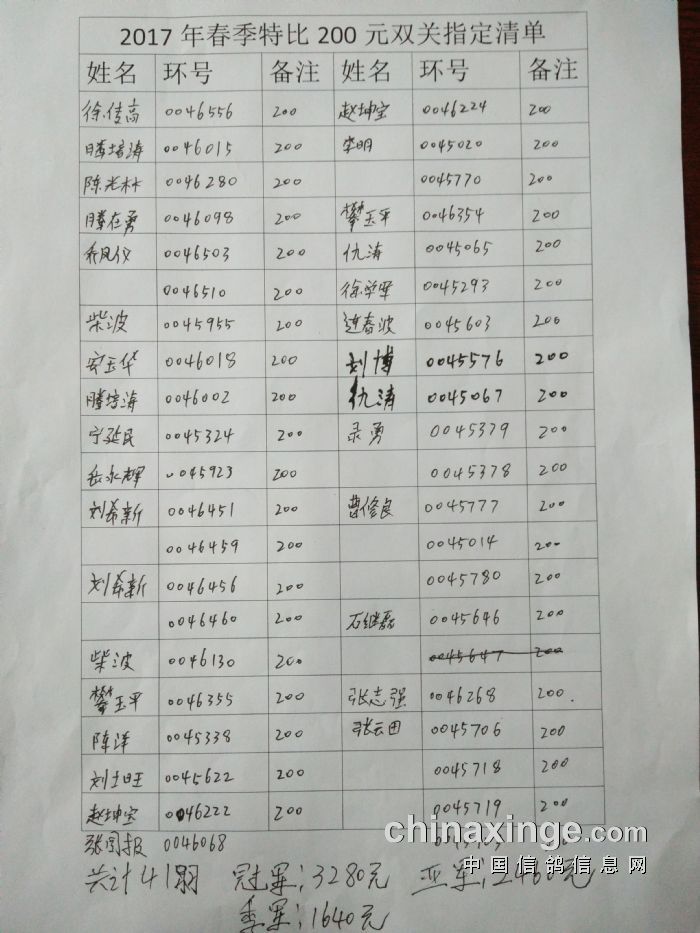 2017年春季特比200元双关指定清单
姓名 环号 备注 姓名 环号 备注
徐传高 0046556 200 赵坤宝 0046224 200
腾培海 0046015 200 李明 0045020 200
陈光林 0046280 200 0045770 200
腾在勇 0046098 200 攀玉平 0046354 200
乔凤仪 0046503 200 仇涛 0045065 200
0046510 200 徐学军 0045293 200
柴波 0045955 200 迮春波 0045603 200
安玉华 0046018 200 刘博 0045576 200
腾培海 0046002 200 仇涛 0045067 200
宁延民 0045324 200 录勇 0045379 200
岳永辉 0045923 200 0045378 200
刘希新 0046451 200 曹修良 0045777 200
0046459 200 0045014 200
刘希新 0046456 200 0045780 200
0046460 200 石继磊 0045646 200
柴波 0046130 200 0045647 200
攀玉平 0046355 200 张志强 0046268 200
陈洋 0045338 200 张云田 0045706 200
刘士旺 0045622 200 0045718 200
赵坤宝 0046222 200 0045719 200
张国报 0046068
共计41羽 冠军:3280元 亚军:2460元
季军:1640元
chinaxinge.com
中国信鸽信息网